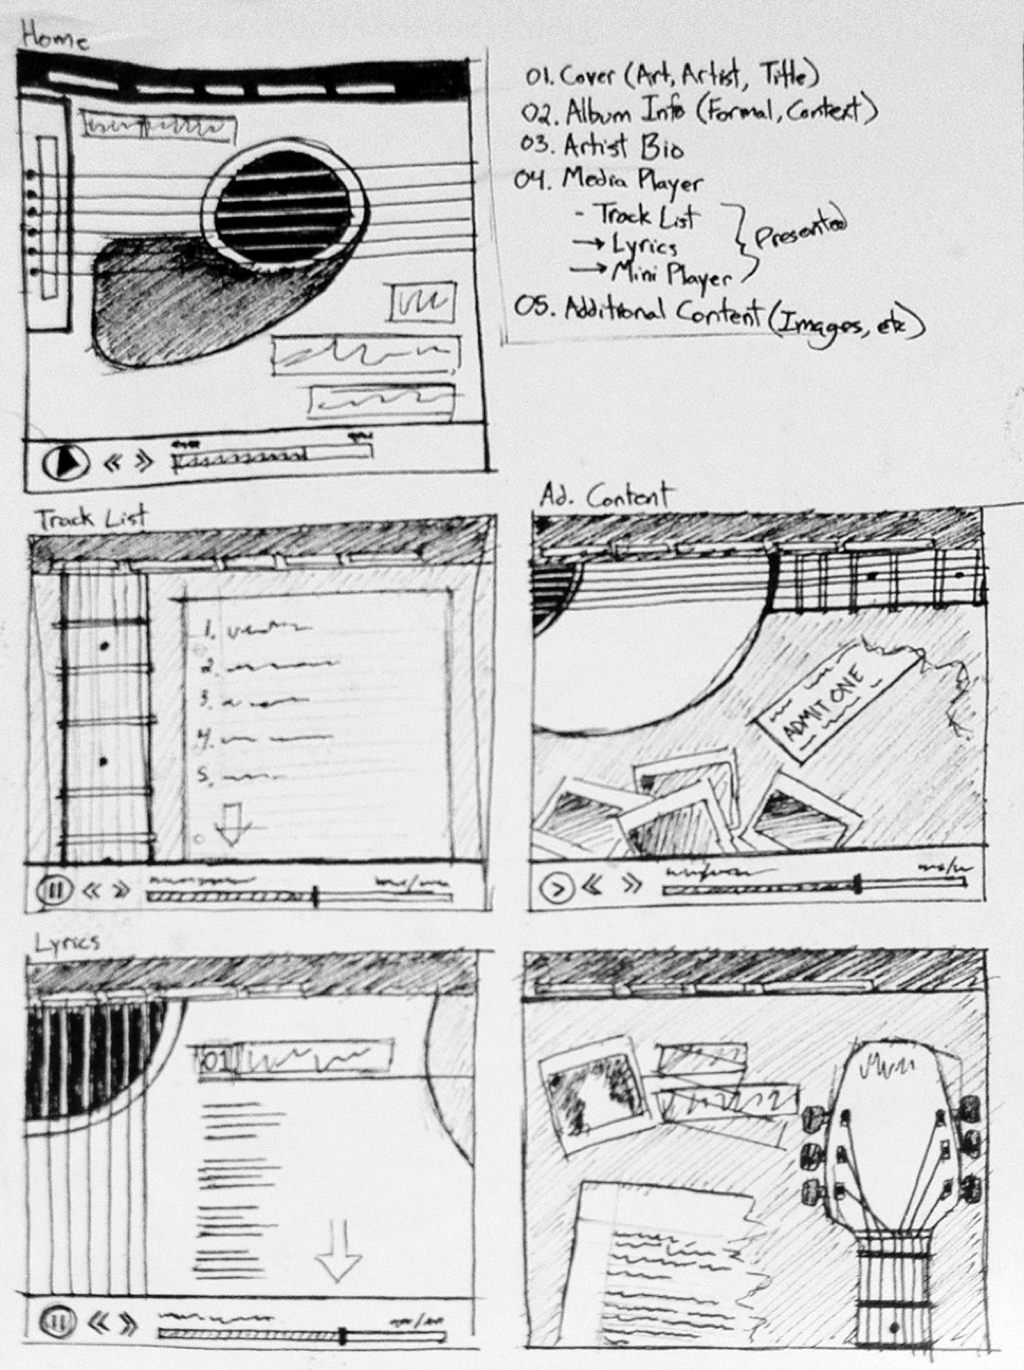 Home
01. Cover (Art, Artist, Title)
02. Album Info (Formal, Context)
03. Artist Bio
04. Media Player
- Track List
→ Lyrics
→ Mini Player
Presented
05. Additional Content (Images, etc)
Track List
1.
2.
3.
4.
5.
Ad. Content
ADMIT ONE
Lyrics
01